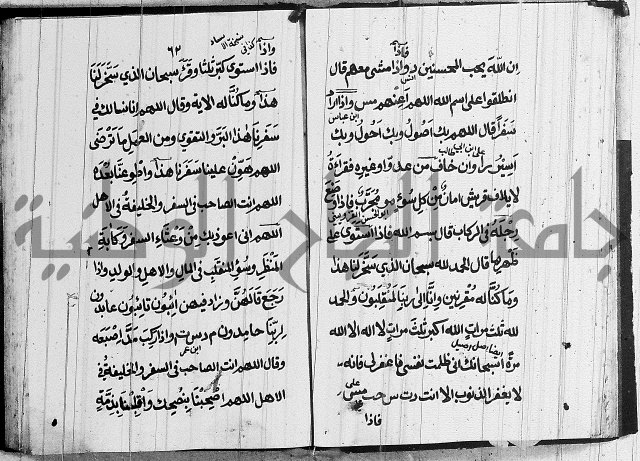 فاذا
ان الله يحب المحسنين د واذا مشى معهم قال
انطلقوا على اسم الله اللهم اعنهم مس واذا اراد
ابن عباس
سفرا قال اللهم بك اصول وبك احول وبك
على ابن ابي طالب
اسير ر ا وان خاف من عدو او غيره فقراءة
لايلاف قريش امان من كل سوء مو مجرب فاذا وضع
ابو الحسن القزويني
رجله في الركاب قال بسم الله فاذا استوى على
ظهرها قال الحمد لله سبحان الذي سخر لنا هذا
وما كنا له مقرنين وانا الى ربنا لمنقلبون والحمد
لله ثلث مرات الله اكبر ثلث مرات لا اله الا الله
مرة سبحانك اني ظلمت نفسي فاغفر لي فانه
لا يغفر الذنوب الا انت د ت س حب مس
على
فاذا
٦٢
واذا
فاذا استوى كبر ثلثا وقرأ سبحان الذي سخر لنا
هذا وما كنا له الاية وقال اللهم انا نسالك في
سفرنا هذا البر والتقوى ومن العمل ما ترضى
اللهم هون علينا سفرنا هذا واطو عنا بعده
اللهم انت الصاحب في السفر والخليفة في الاهل
اللهم اني اعوذ بك من وعثاء السفر وكابة
المنظر وسوء المنقلب في المال والاهل والولد واذا
رجع قالهن وزاد فيهن آئبون تائبون عابدون
لربنا حامدون م د س ت واذا ركب مد اصبعه
ابن عمر
وقال اللهم انت الصاحب في السفر والخليفة في
الاهل اللهم اصحبنا بنصحك واقلبنا بذمة
جامعة النجاح الوطنية